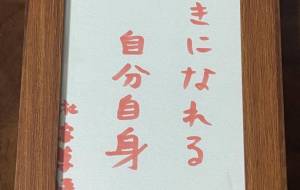 きになれる
自分自身